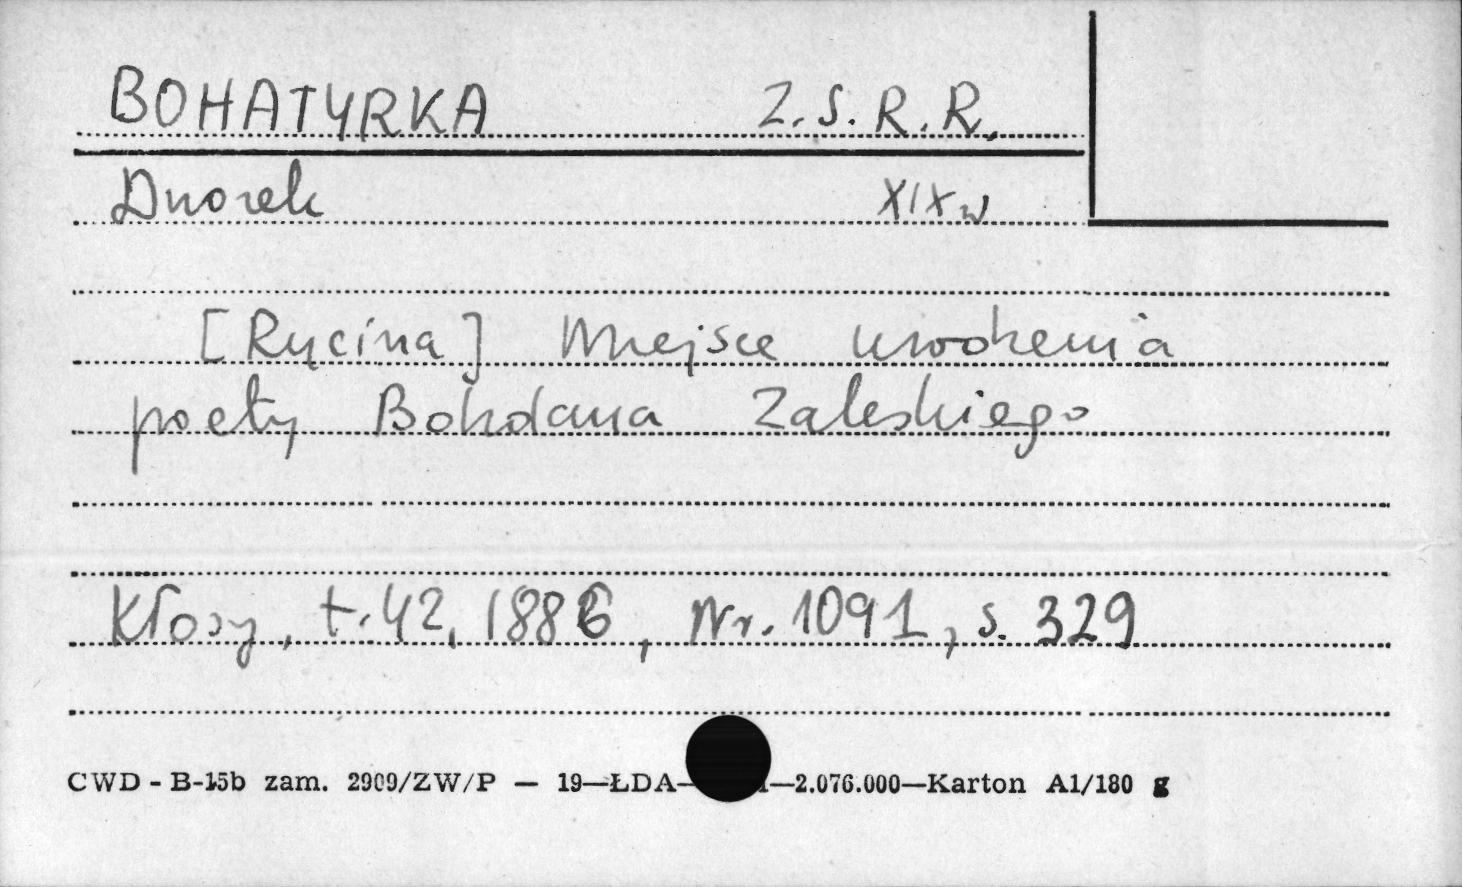 BOHATYRKA Z.S.R.R.
Dworek XIX w
[Rycina] Miejsce urodzenia
poety Bohdana Zaleskiego
Kłosy, t. 42, 1886, Nr. 1091, s. 329
CWD - B-15b zam. 2909/ZW/P — 19—ŁDA— —2.076.000—Karton A1/180 g